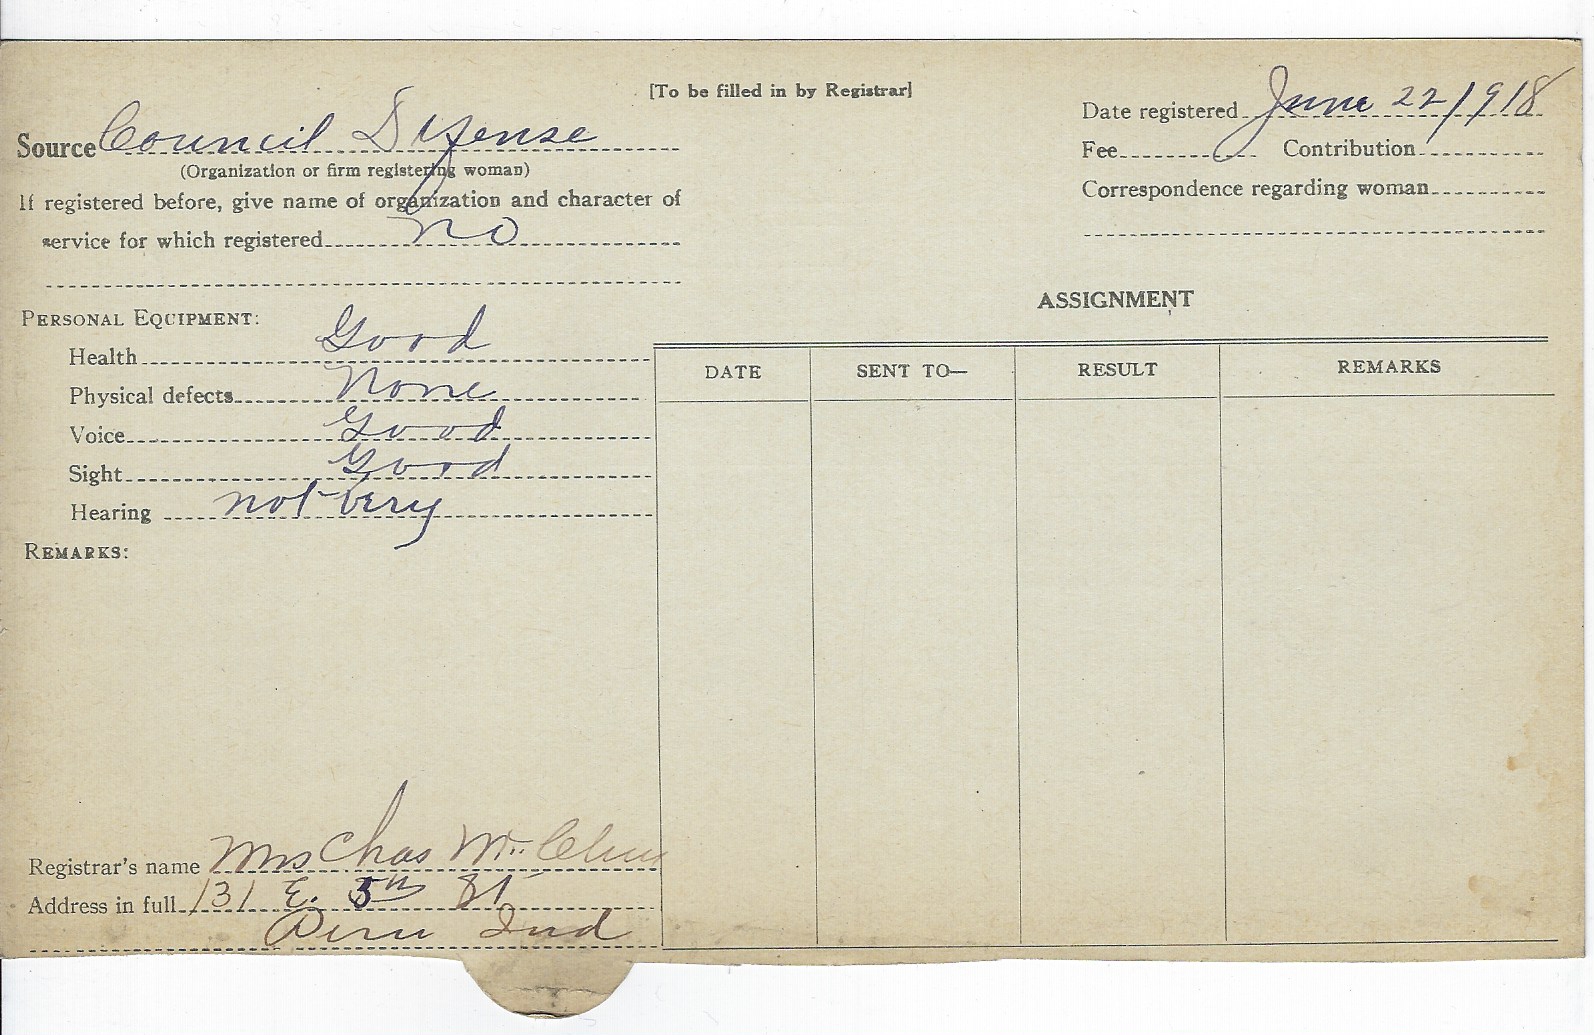 [To be filled in by Registrar]
Source Council Defense
(Organization or firm registering woman)
If registered before, give name of organization and character of
service for which registered no
Date registered June 22/1918
Fee Contribution
Correspondence regarding woman
PERSONAL EQUIPMENT:
Health Good
Physical defects None
Voice Good
Sight Good
Hearing not very
REMARKS:
ASSIGNMENT
DATE SENT TO— RESULT REMARKS
Registrar's name Mrs Chas
Address in full 131 E. 5th St
Peru Ind